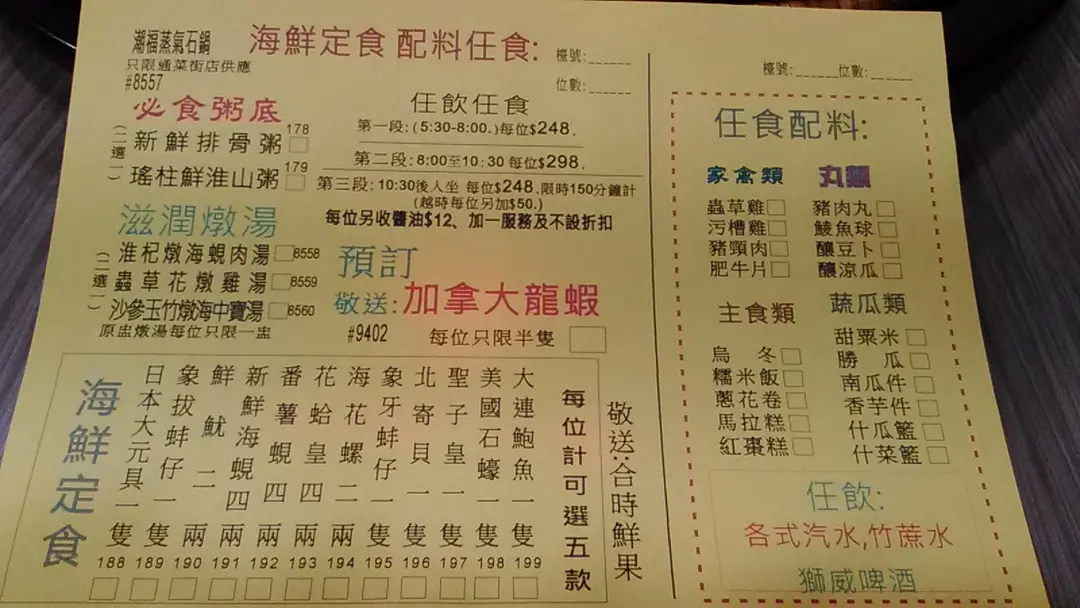 潮福蒸氣石鍋
只限通菜街店供應
#8557
海鮮定食 配料任食:
檯號:______
位數:______
必食粥底
(二選一)
新鮮排骨粥 178
瑤柱鮮淮山粥 179
任飲任食
第一段:(5:30-8:00.)每位$248.
第二段:8:00至10:30 每位$298.
第三段:10:30後入坐 每位$248,限時150分鐘計
(越時每位另加$50.)
每位另收醬油$12、加一服務及不設折扣
滋潤燉湯
(二選一)
淮杞燉海蜆肉湯 8558
蟲草花燉雞湯 8559
沙參玉竹燉海中寶湯 8560
原盅燉湯每位只限一盅
預訂
敬送:加拿大龍蝦
#9402 每位只限半隻
海鮮定食
日本大元貝一隻 188
象拔蚌仔一隻 189
鮮魷二兩 190
新鮮海蜆四兩 191
番薯蜆四兩 192
花蛤皇四兩 193
海花螺二兩 194
象牙蚌仔一隻 195
北寄貝一隻 196
聖子皇一隻 197
美國石蠔一隻 198
大連鮑魚一隻 199
每位計可選五款
敬送:合時鮮果
檯號:______位數:______
任食配料:
家禽類
蟲草雞
污糟雞
豬頸肉
肥牛片
丸類
豬肉丸
鯪魚球
釀豆卜
釀涼瓜
主食類
烏冬
糯米飯
蔥花卷
馬拉糕
紅棗糕
蔬瓜類
甜粟米
勝瓜
南瓜件
香芋件
什瓜籃
什菜籃
任飲:
各式汽水,竹蔗水
獅威啤酒